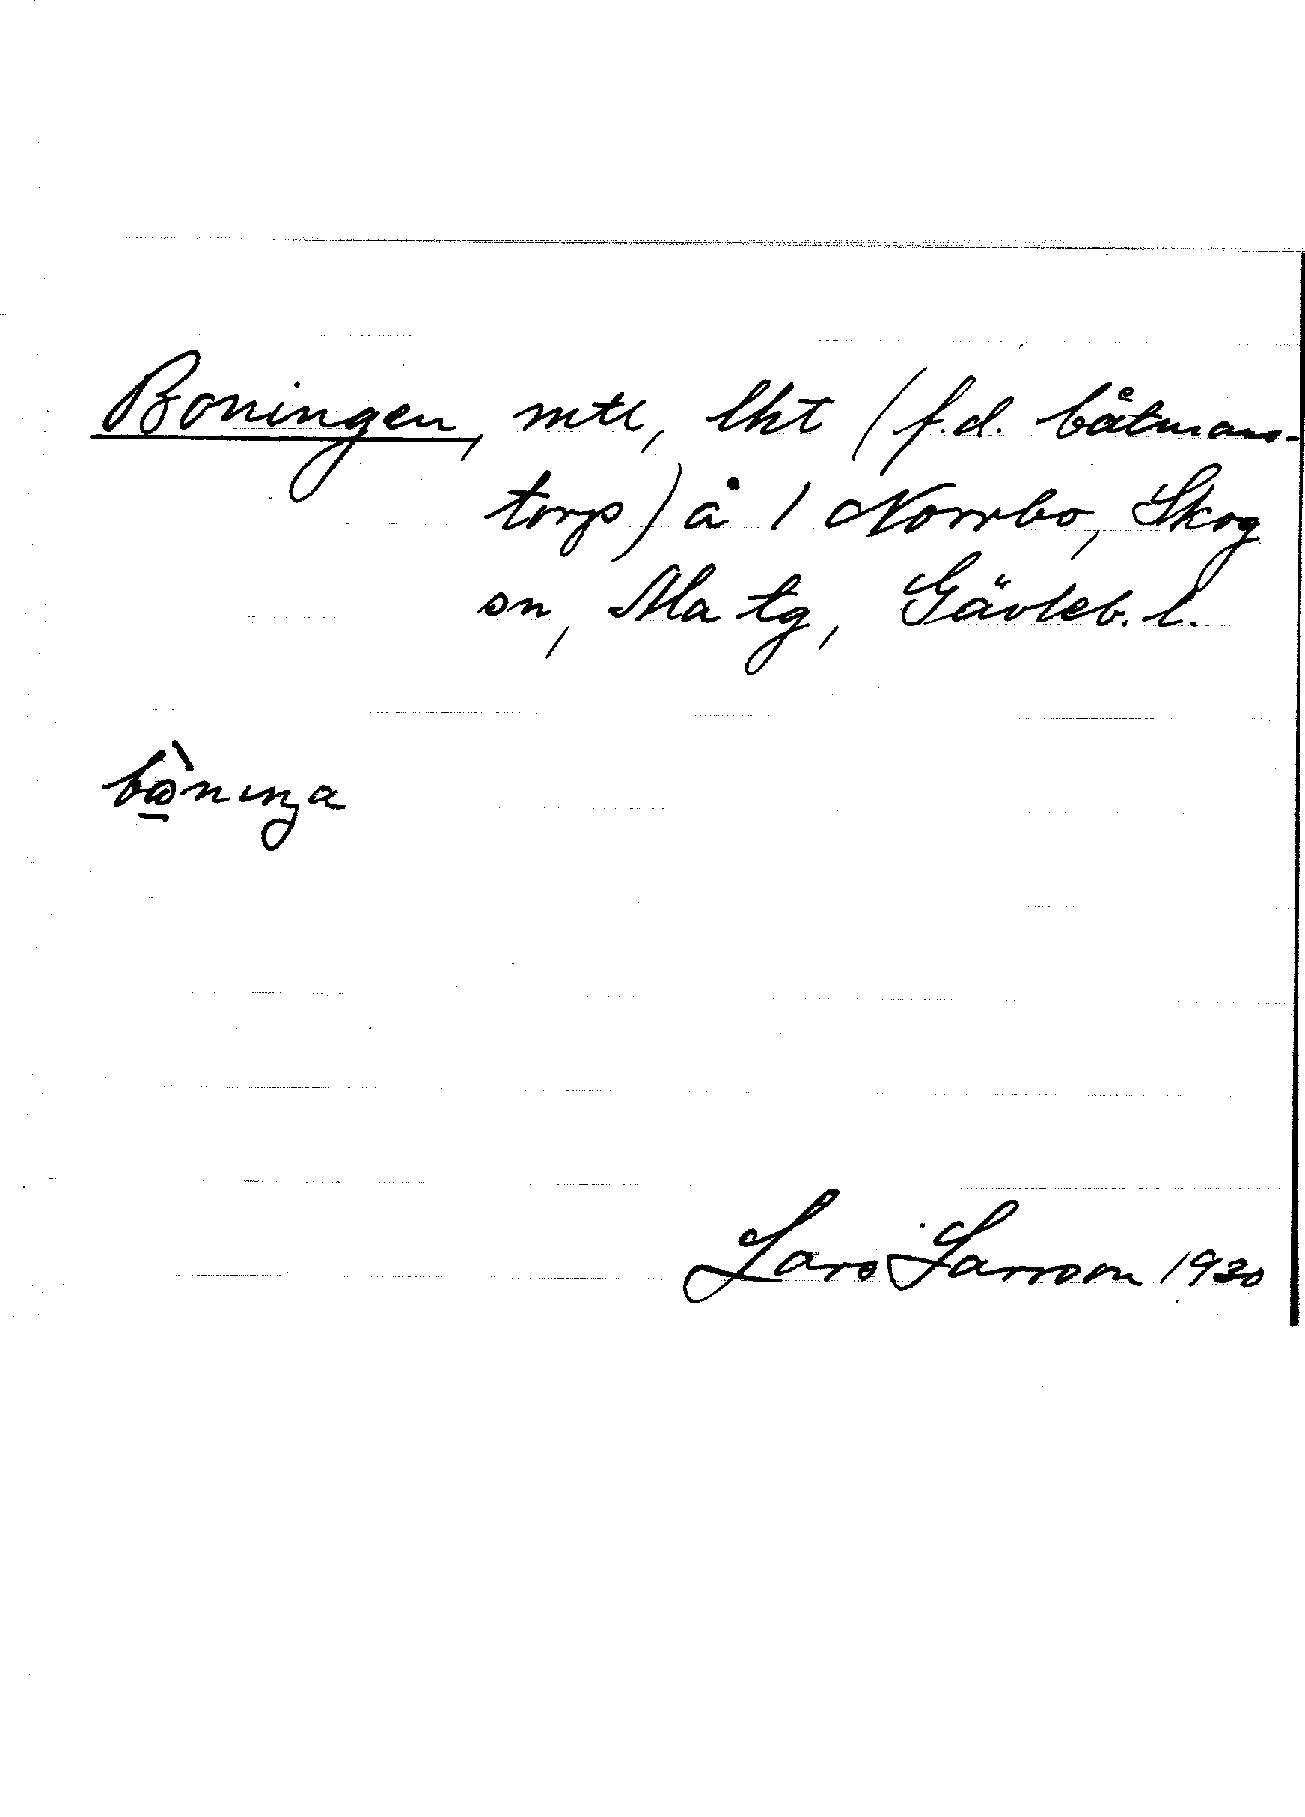 Boningen, mtl, lht (f.d. båtmans-
torp) å 1 Norrbo, Skog
sn, Ala tg, Gävleb. l.
Lars Larsson 1930